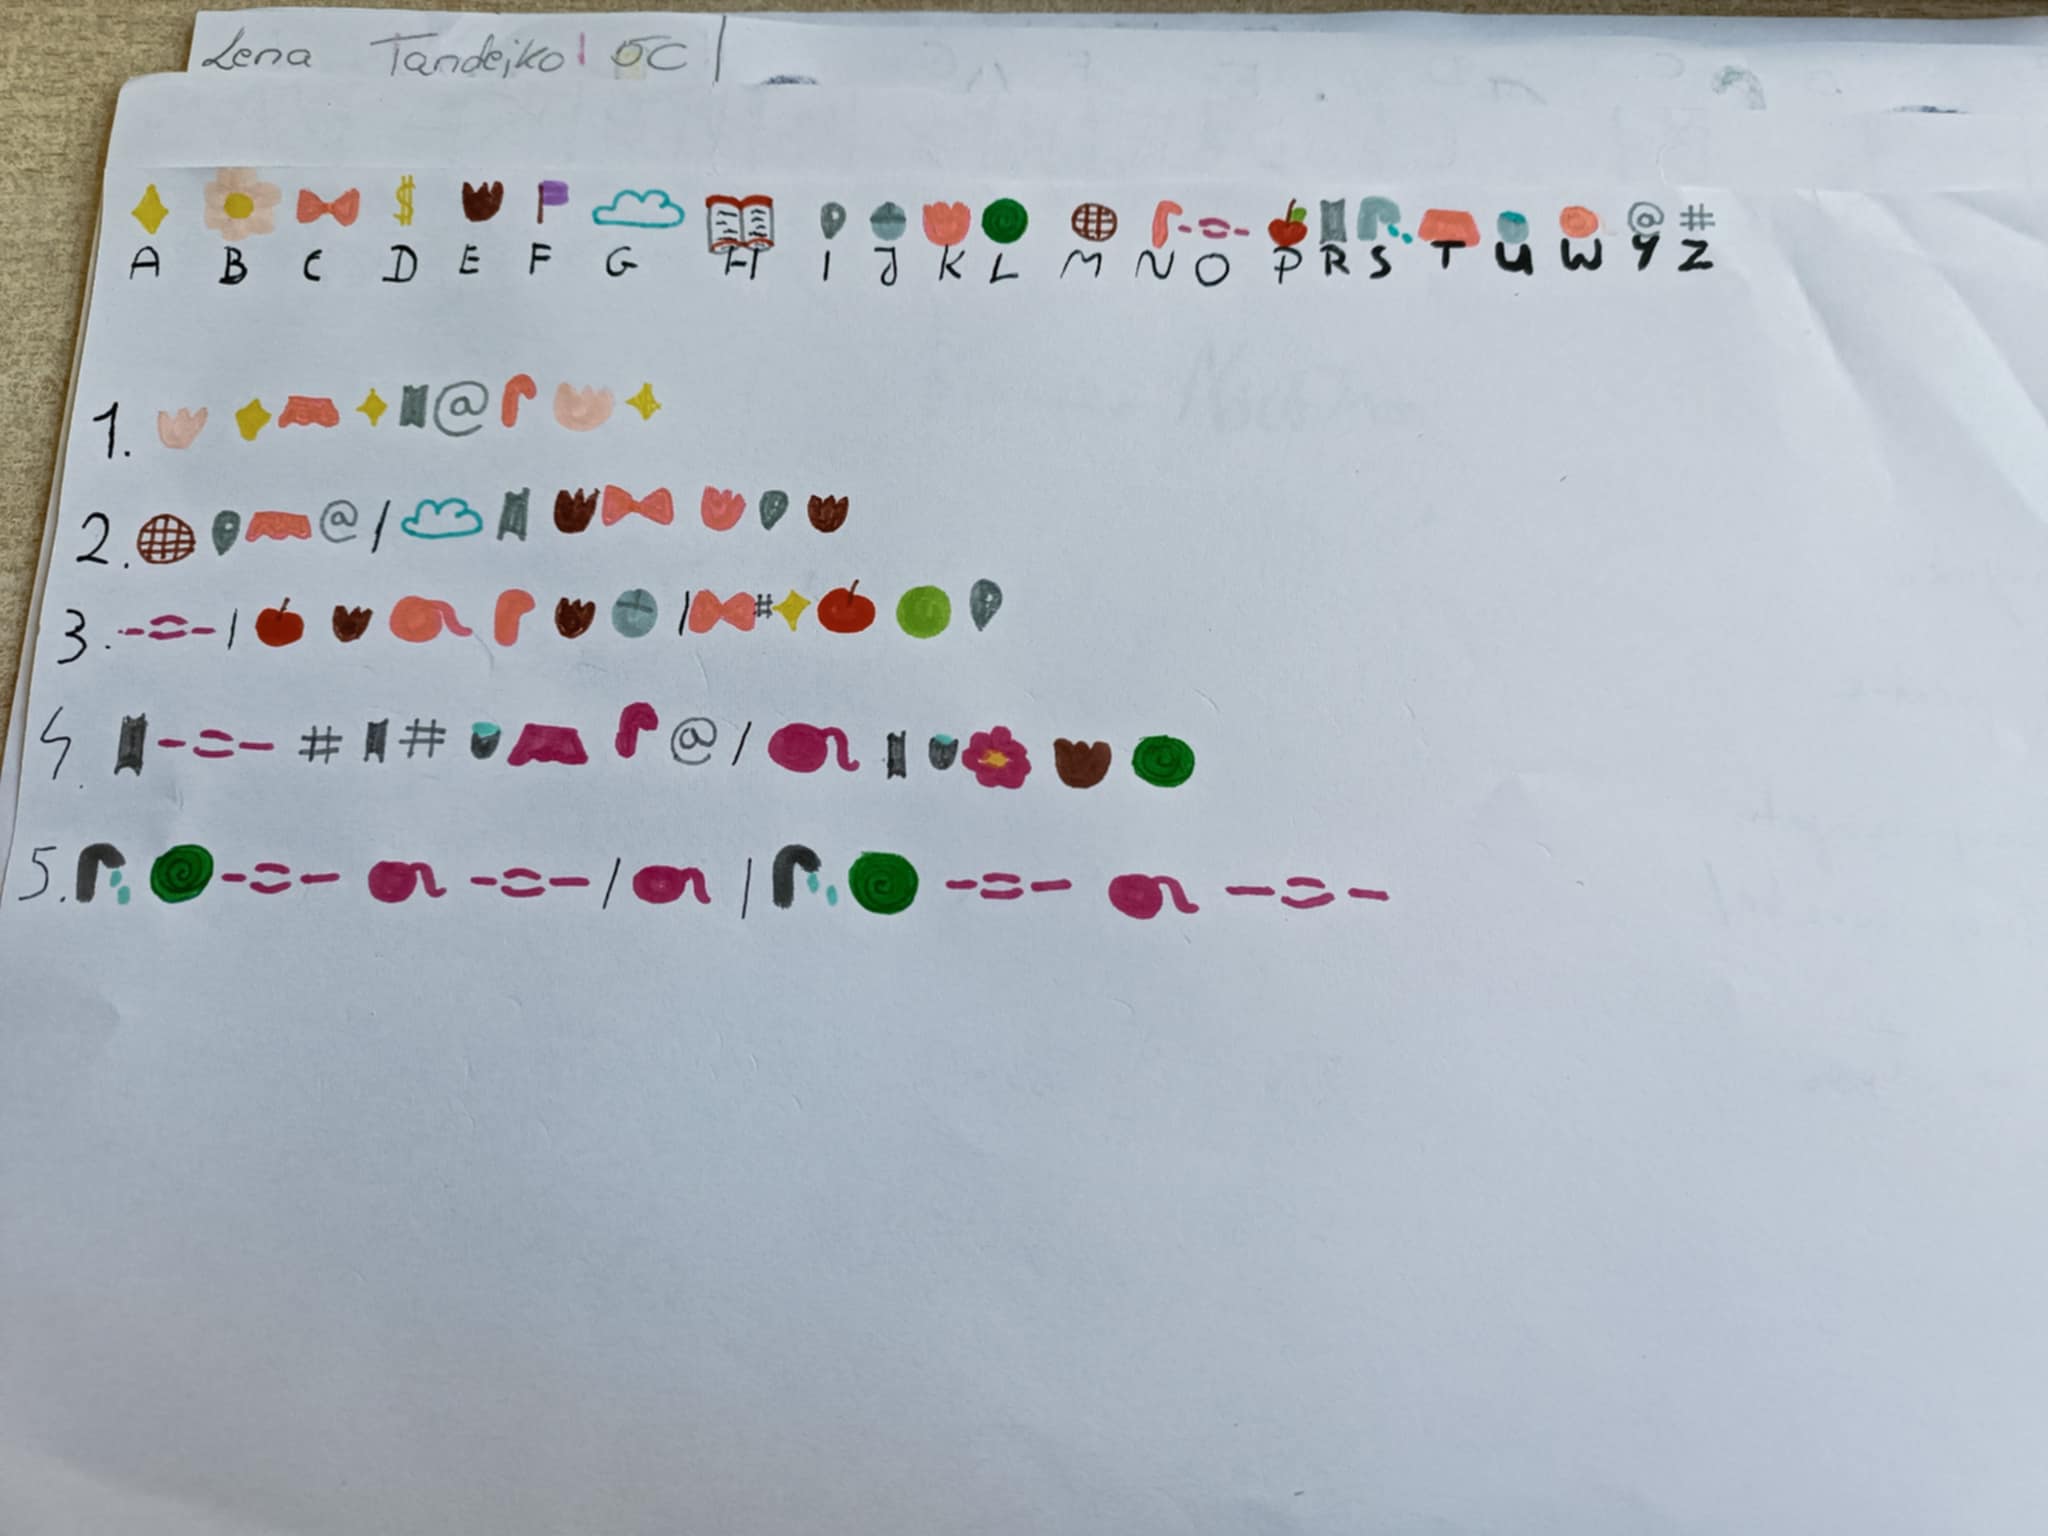 Lena Tandejko 5C
A B C D E F G H I J K L M N O P R S T U W Y Z
1. @
2. @ /
3. / / #
4. # # @ /
5. / /